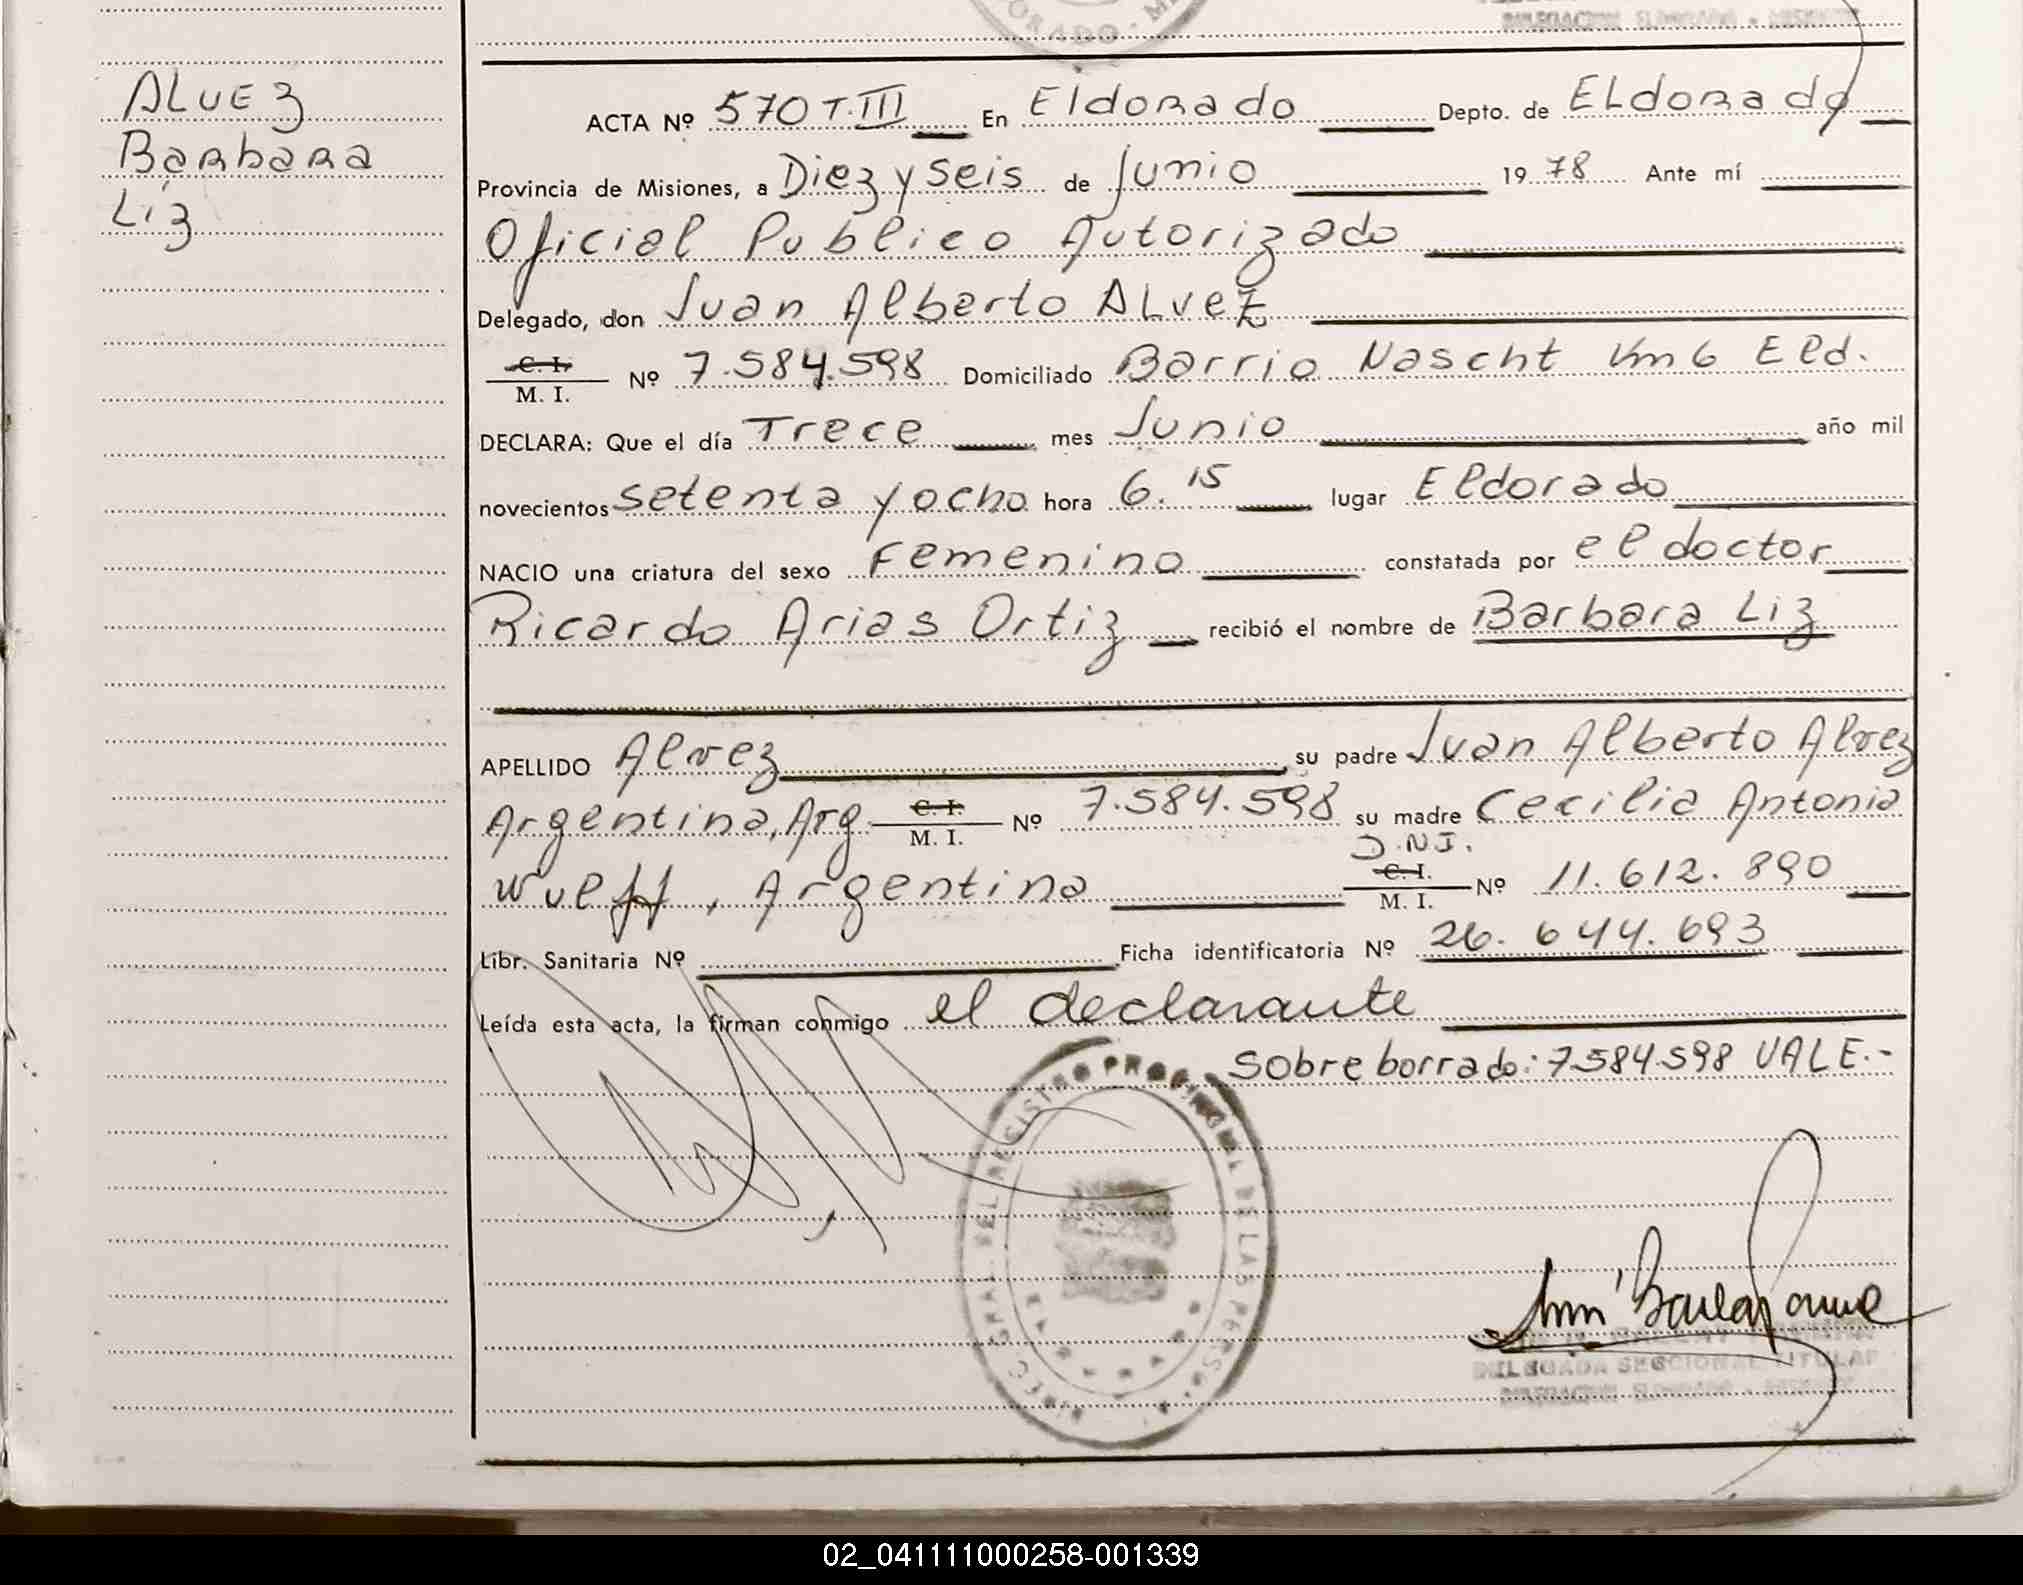 ALVEZ
Barbara
Liz
ACTA Nº 570 T.III En Eldorado Depto. de Eldorado
Provincia de Misiones, a Diez y seis de Junio 19 78 Ante mí
Oficial Publico Autorizado
Delegado, don Juan Alberto ALVEZ
C. I. / M. I. Nº 7.584.598 Domiciliado Barrio Nascht Km 6 Eld.
DECLARA: Que el día Trece mes Junio año mil
novecientos setenta y ocho hora 6.15 lugar Eldorado
NACIO una criatura del sexo Femenino constatada por el doctor
Ricardo Arias Ortiz recibió el nombre de Barbara Liz
APELLIDO Alvez su padre Juan Alberto Alvez
Argentina, Arg. C. I. / M. I. Nº 7.584.598 su madre Cecilia Antonia
Wulff, Argentina D.N.I. C. I. / M. I. Nº 11.612.890
Libr. Sanitaria Nº Ficha identificatoria Nº 26.644.693
Leída esta acta, la firman conmigo el declarante
Sobre borrado: 7584598 VALE.-
DIREC. GRAL. DEL REGISTRO PROVINCIAL DE LAS PERSONAS
DELEGADA SECCIONAL TITULAR
02_041111000258-001339